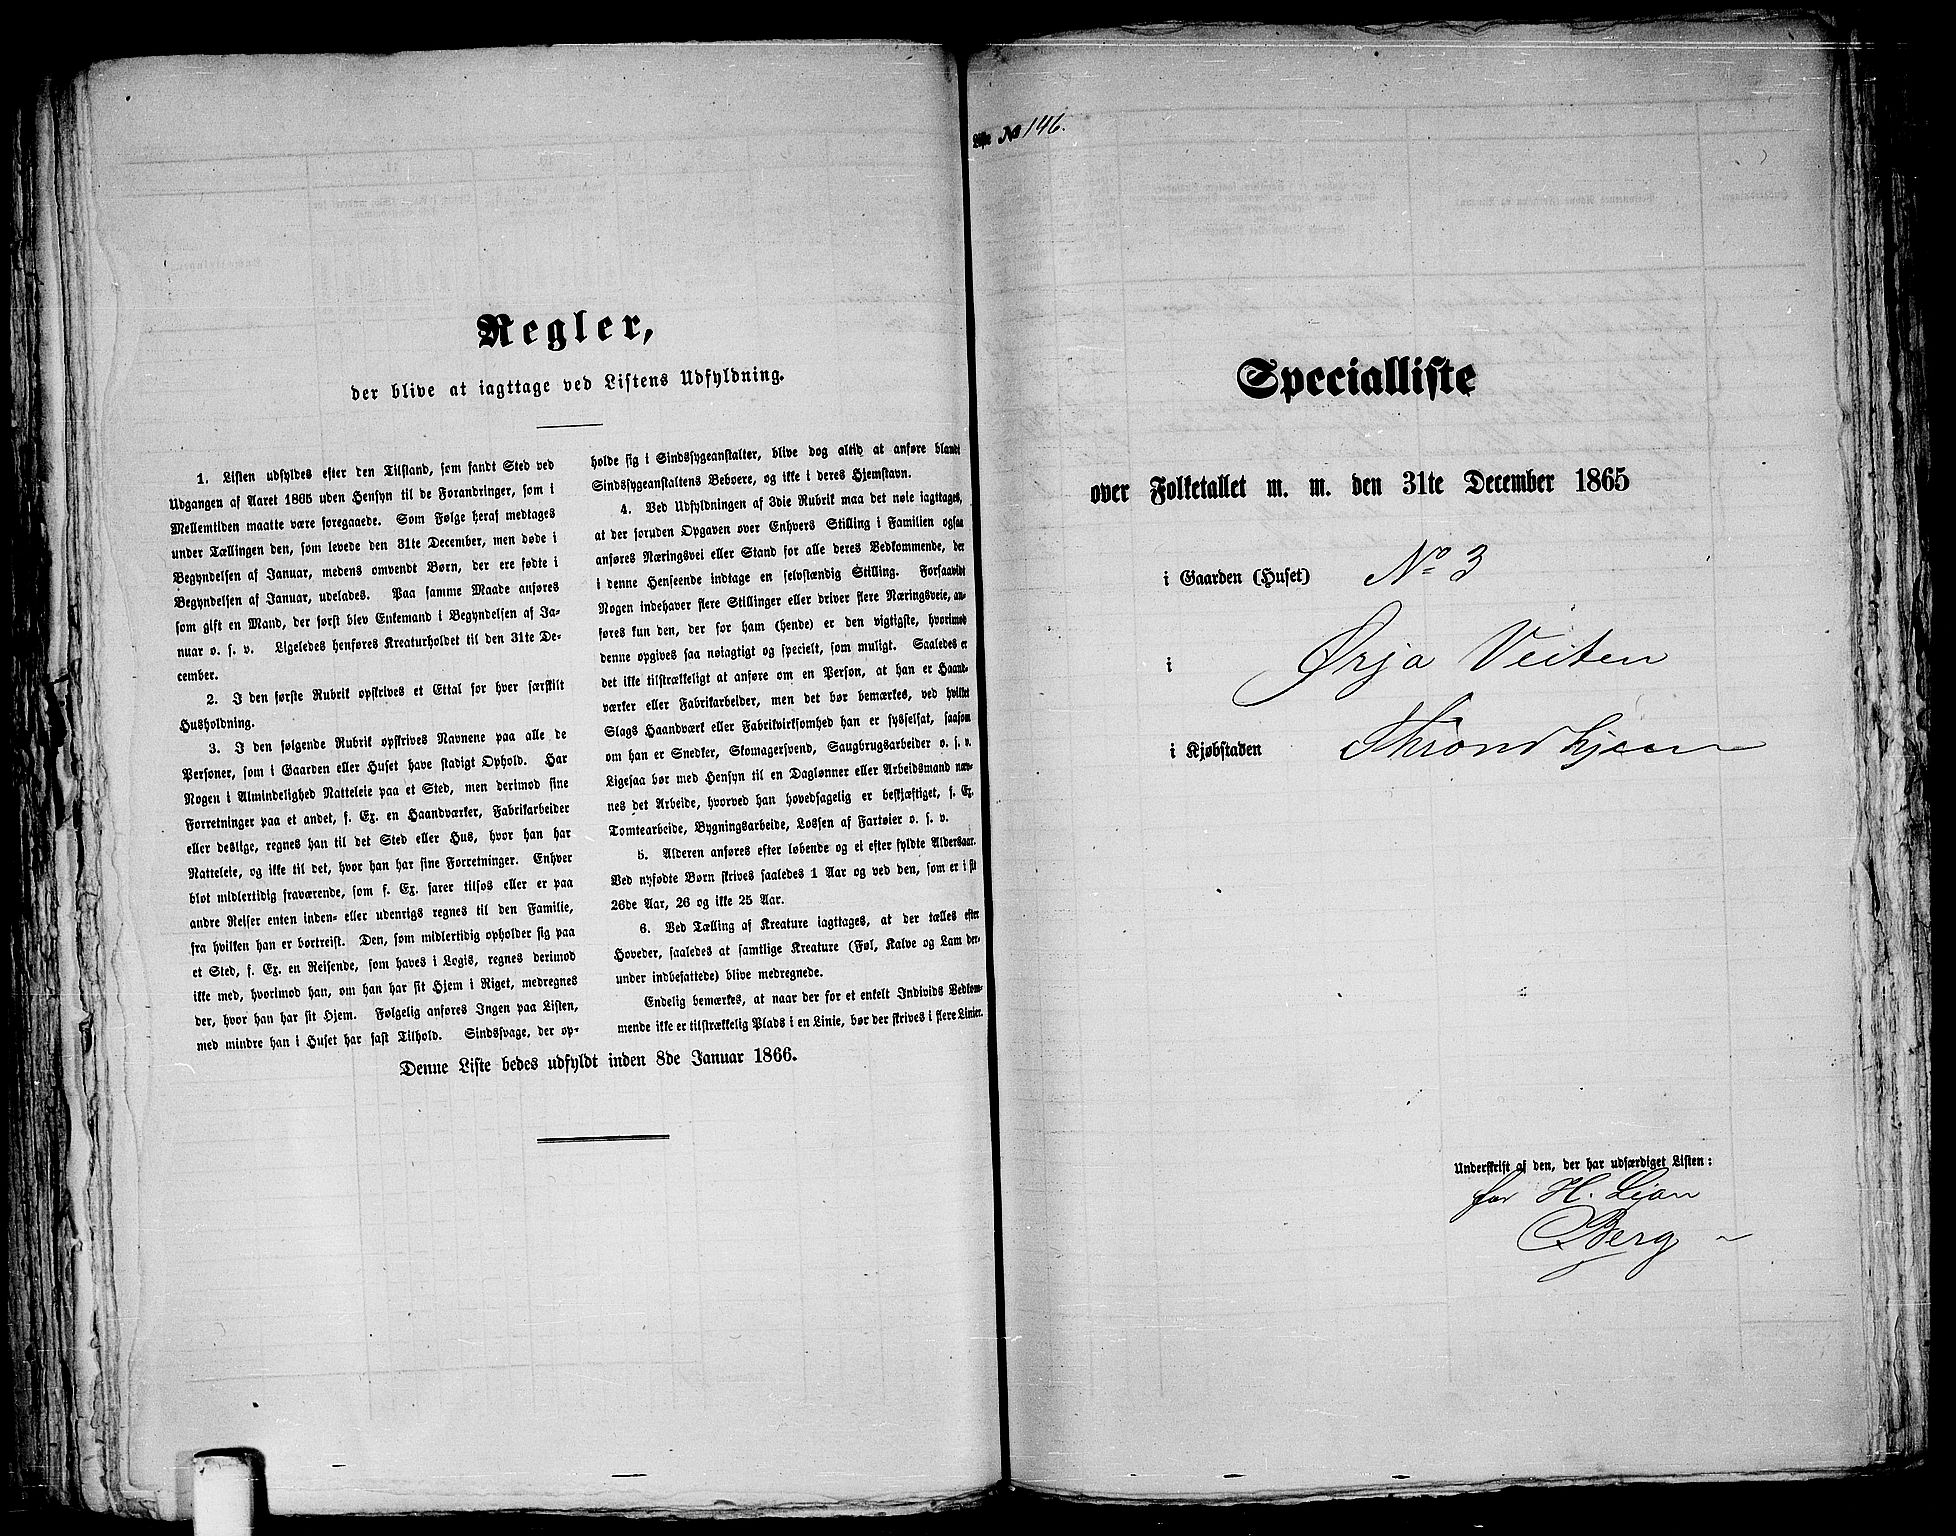 Regler,
der blive at iagttage ved Listens Udfyldning.
1. Listen udfyldes efter den Tilstand, som fandt Sted ved
Udgangen af Aaret 1865 uden Hensyn til de Forandringer, som i
Mellemtiden maatte være foregaaede. Som Følge heraf medtages
under Tællingen den, som levede den 31te December, men døde i
Begyndelsen af Januar, medens omvendt Børn, der ere fødte i
Begyndelsen af Januar, udelades. Paa samme Maade anføres
som gift en Mand, der først blev Enkemand i Begyndelsen af Ja-
nuar o. s. v. Ligeledes henføres Kreaturholdet til den 31te De-
cember.
2. I den første Rubrik opskrives et Ettal for hver særskilt
Husholdning.
3. I den følgende Rubrik opskrives Navnene paa alle de
Personer, som i Gaarden eller Huset have stadigt Ophold. Har
Nogen i Almindelighed Natteleie paa et Sted, men derimod sine
Forretninger paa et andet, f. Ex. en Haandværker, Fabrikarbeider
eller deslige, regnes han til det Sted eller Hus, hvor han har
Natteleie, og ikke til det, hvor han har sine Forretninger. Enhver
blot midlertidig fraværende, som f. Ex. farer tilsøs eller er paa
andre Reiser enten inden- eller udenrigs regnes til den Familie,
fra hvilken han er bortreist. Den, som midlertidig opholder sig paa
et Sted, f. Ex. en Reisende, som haves i Logis, regnes derimod
ikke med, hvorimod han, om han har sit Hjem i Riget, medregnes
der, hvor han har sit Hjem. Følgelig anføres Ingen paa Listen,
med mindre han i Huset har fast Tilhold. Sindssvage, der op-
holde sig i Sindssygeanstalter, blive dog altid at anføre blandt
Sindssygeanstaltens Beboere, og ikke i deres Hjemstavn.
4. Ved Udfyldningen af 3die Rubrik maa det nøie iagttages,
at der foruden Opgaven over Enhvers Stilling i Familien ogsaa
anføres Næringsvei eller Stand for alle deres Vedkommende, der
i denne Henseende indtage en selvstændig Stilling. Forsaavidt
Nogen indehaver flere Stillinger eller driver flere Næringsveie, an-
føres kun den, der for ham (hende) er den vigtigste, hvorimod
denne opgives saa nøiagtigt og specielt, som muligt. Saaledes er
det ikke tilstrækkeligt at anføre om en Person, at han er Haand-
værker eller Fabrikarbeider, men det bør bemærkes, ved hvilket
Slags Haandværk eller Fabrikvirksomhed han er sysselsat, saasom
om han er Snedker, Skomagersvend, Saugbrugsarbeider o. s. v.
Ligesaa bør med Hensyn til en Daglønner eller Arbeidsmand næv-
nes det Arbeide, hvorved han hovedsagelig er beskjæftiget, f. Ex.
Tomtearbeide, Bygningsarbeide, Lossen af Fartøier o. s. v.
5. Alderen anføres efter løbende og ei efter fyldte Aldersaar.
Ved nyfødte Børn skrives saaledes 1 Aar og ved den, som er i sit
26de Aar, 26 og ikke 25 Aar.
6. Ved Tælling af Kreature iagttages, at der tælles efter
Hoveder, saaledes at samtlige Kreature (Føl, Kalve og Lam der-
under indbefattede) blive medregnede.
Endelig bemærkes, at naar der for et enkelt Individs Vedkom-
mende ikke er tilstrækkelig Plads i en Linie, bør der skrives i flere Linier.
Denne Liste bedes udfyldt inden 8de Januar 1866.
Liste No 146.
Specialliste
over Folketallet m. m. den 31te December 1865
i Gaarden (Huset) No 3
i Ørja Veiten
i Kjøbstaden Throndhjem
Underskrift af den, der har udfærdiget Listen:
for H. Lian
Berg